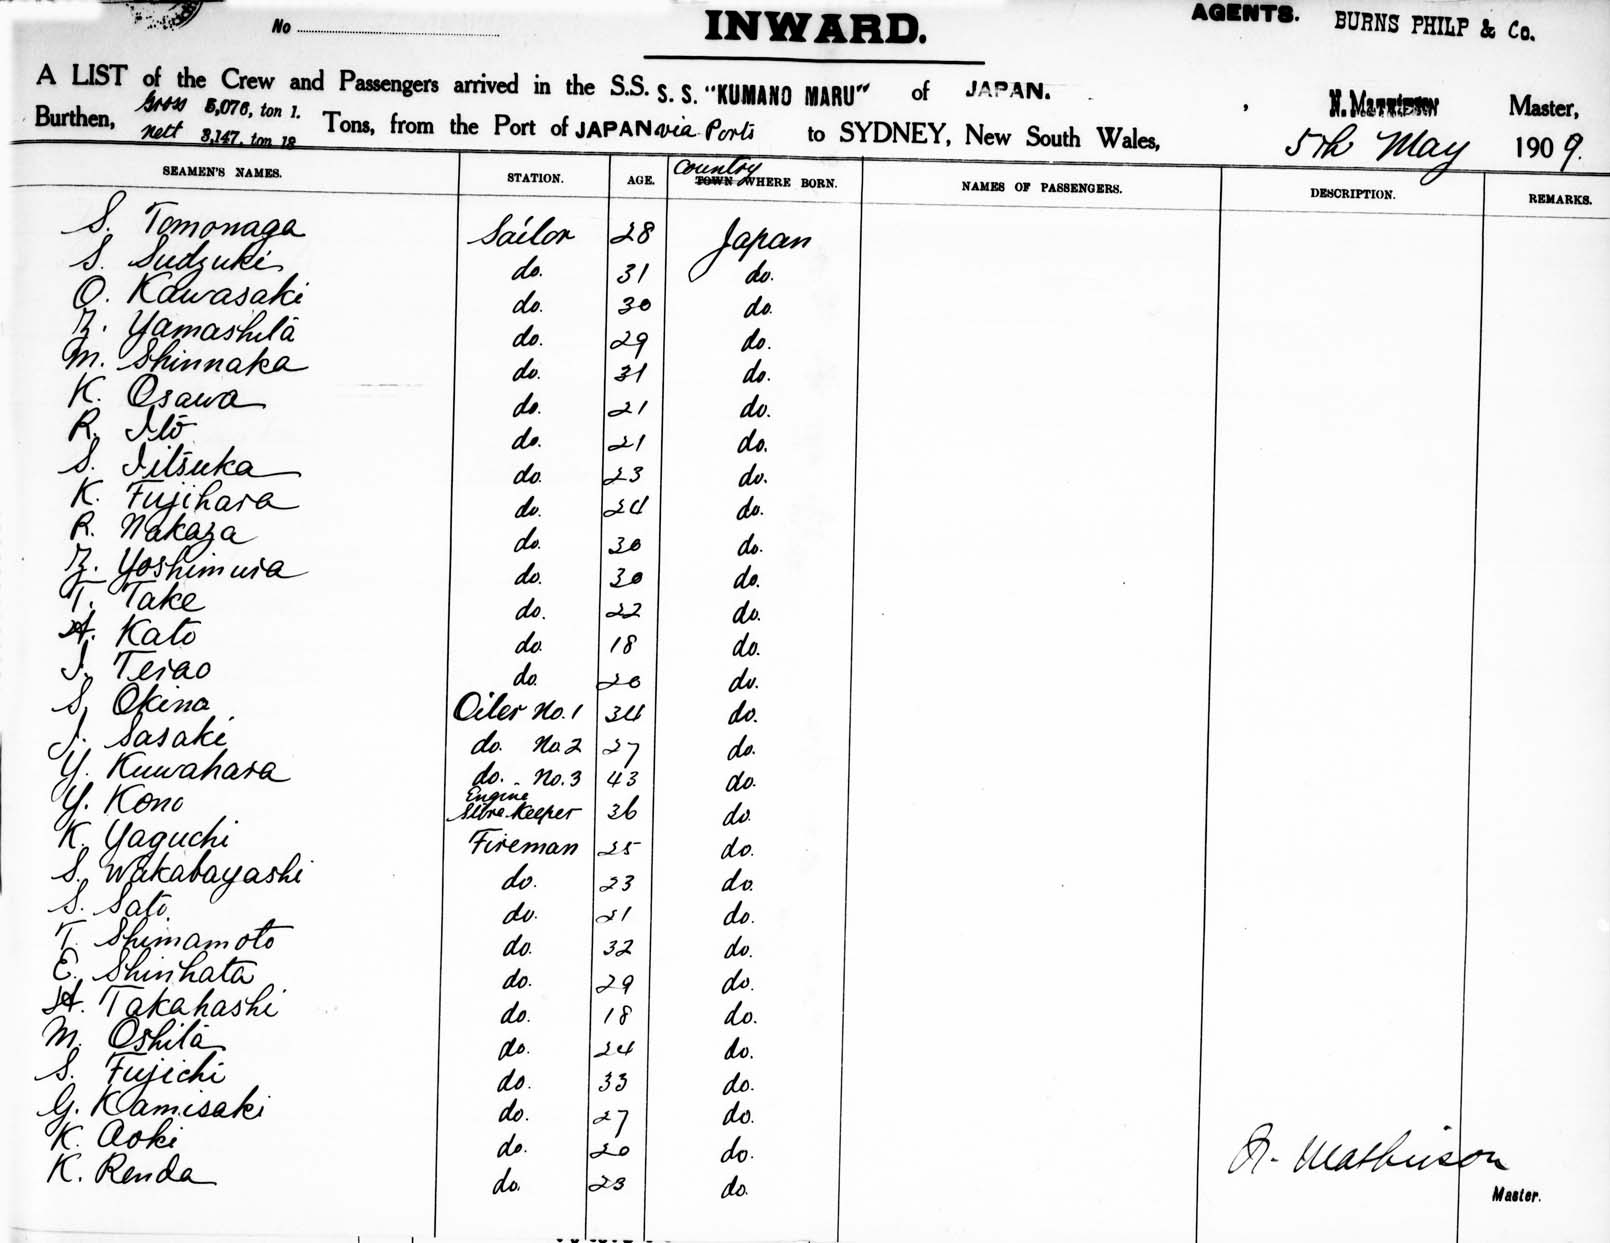 No
INWARD.
AGENTS. BURNS PHILP & Co.
A LIST of the Crew and Passengers arrived in the S.S. S. S. "KUMANO MARU" of JAPAN. , Master,
Burthen, Gross 5,076, ton 1. Nett 3,147. ton 12 Tons, from the Port of JAPAN via Ports to SYDNEY, New South Wales, 5th May 1909.
SEAMEN'S NAMES. STATION. AGE. Country TOWN WHERE BORN. NAMES OF PASSENGERS. DESCRIPTION. REMARKS.
S. Tomonaga Sailor 28 Japan
S. Sudzuki do. 31 do.
O. Kawasaki do. 30 do.
Z. Yamashita do. 29 do.
M. Shinnaka do. 31 do.
K. Osawa do. 21 do.
R. Itō do. 21 do.
S. Iitsuka do. 23 do.
K. Fujihara do. 24 do.
R. Nakaza do. 30 do.
Z. Yoshimura do. 30 do.
T. Take do. 22 do.
H. Kato do. 18 do.
I. Terao do. 20 do.
S. Okina Oiler No. 1 34 do.
J. Sasaki do. No. 2 27 do.
Y. Kuwahara do. No. 3 43 do.
Y. Kono Engine Store Keeper 36 do.
K. Yaguchi Fireman 25 do.
S. Wakabayashi do. 23 do.
S. Sato do. 21 do.
T. Shimamoto do. 32 do.
E. Shinhata do. 29 do.
H. Takahashi do. 18 do.
M. Oshita do. 24 do.
S. Fujichi do. 33 do.
G. Kamisaki do. 27 do.
K. Aoki do. 20 do.
K. Renda do. 23 do.
N. Mathieson
Master.